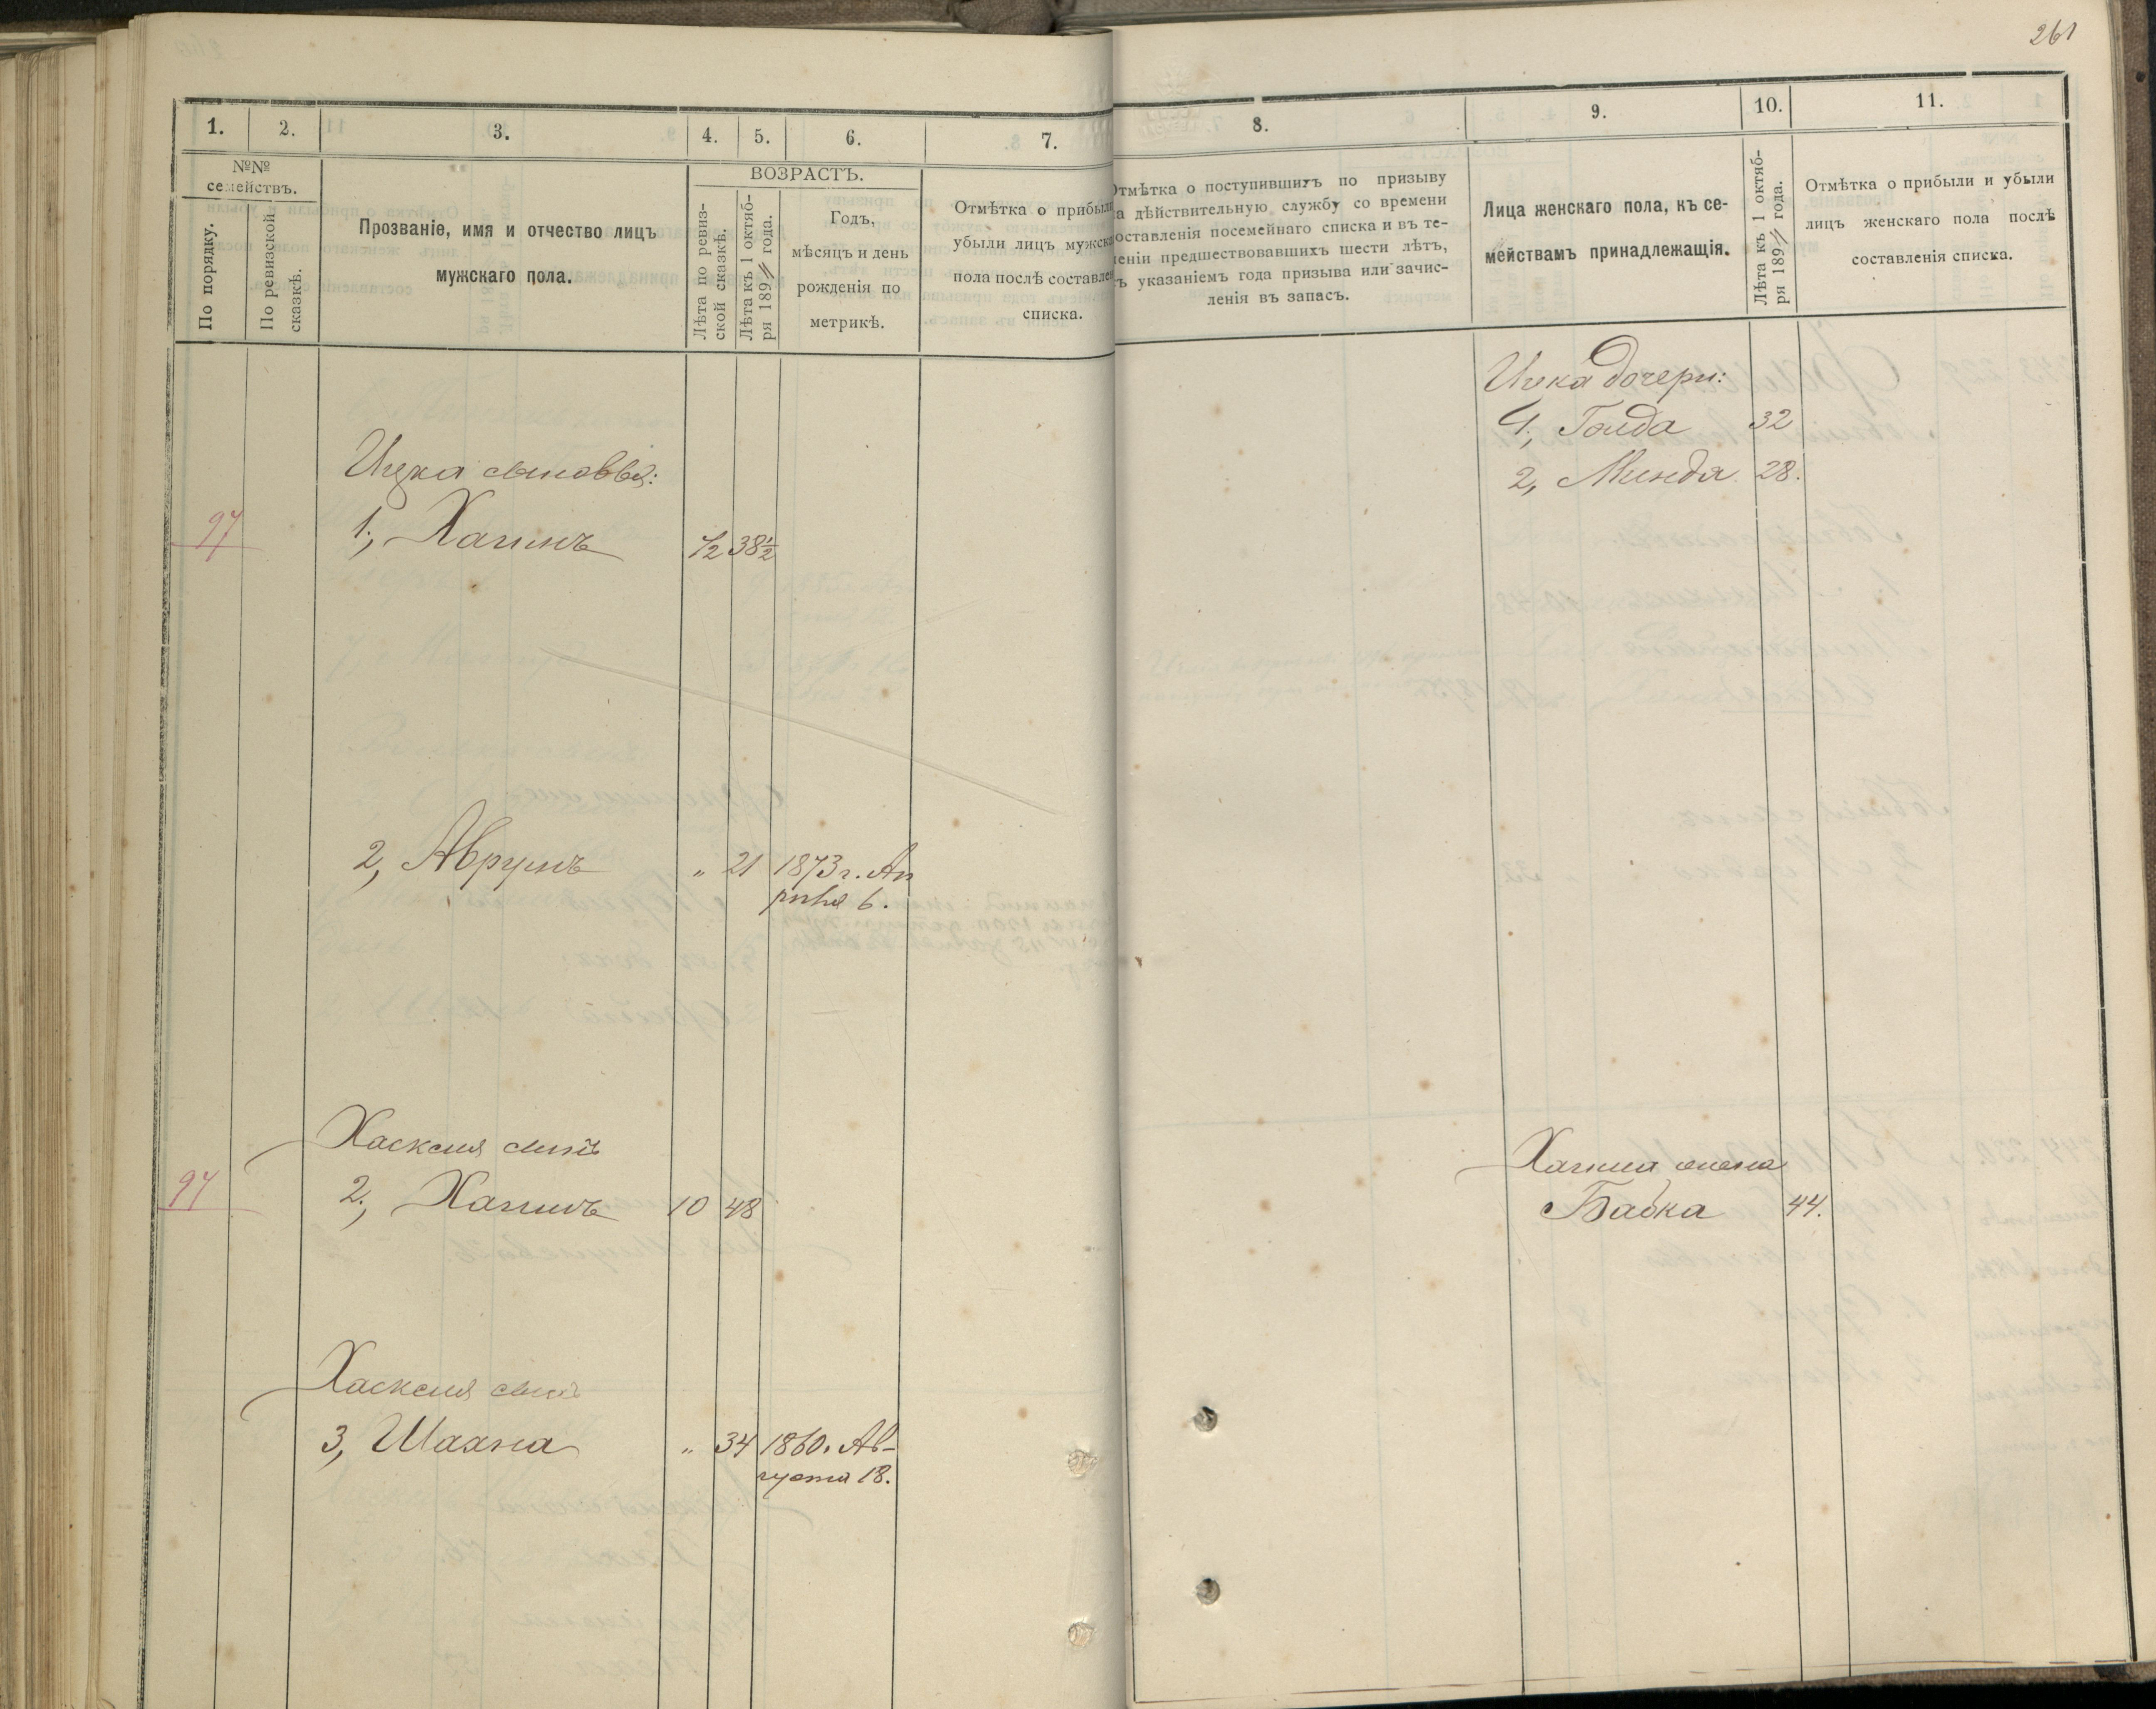 261
1.
2.
3.
4.
5.
6.
7.
8.
9.
10.
11.
№№
семействъ.
По порядку.
По ревизской
сказкѣ.
Прозваніе, имя и отчество лицъ
мужскаго пола.
ВОЗРАСТЪ.
Лѣта по ревиз-
ской сказкѣ.
Лѣта къ 1 октяб-
ря 189 года.
Годъ,
мѣсяцъ и день
рожденія по
метрикѣ.
Отмѣтка о прибыли
убыли лицъ мужск
пола послѣ составлен
списка.
Отмѣтка о поступившихъ по призыву
на дѣйствительную службу со времени
составленія посемейнаго списка и въ те-
ченіи предшествовавшихъ шести лѣтъ,
съ указаніемъ года призыва или зачис-
ленія въ запасъ.
Лица женскаго пола, къ се-
мействамъ принадлежащія.
Лѣта къ 1 октяб-
ря 189 года.
Отмѣтка о прибыли и убыли
лицъ женскаго пола послѣ
составленія списка.
Ицка дочери:
1, Голда 32
2, Минда 28.
Ицка сыновья:
97 1, Хаимъ 1/2 38 1/2
2, Аврумъ " 21 1873 г. Ап
рѣля 6.
Хаскеля сынъ
97 2, Хаимъ 10 48
Хаима жена
Бабка 44.
Хаскеля сынъ
3, Шахна " 34 1860. Ав-
густа 18.